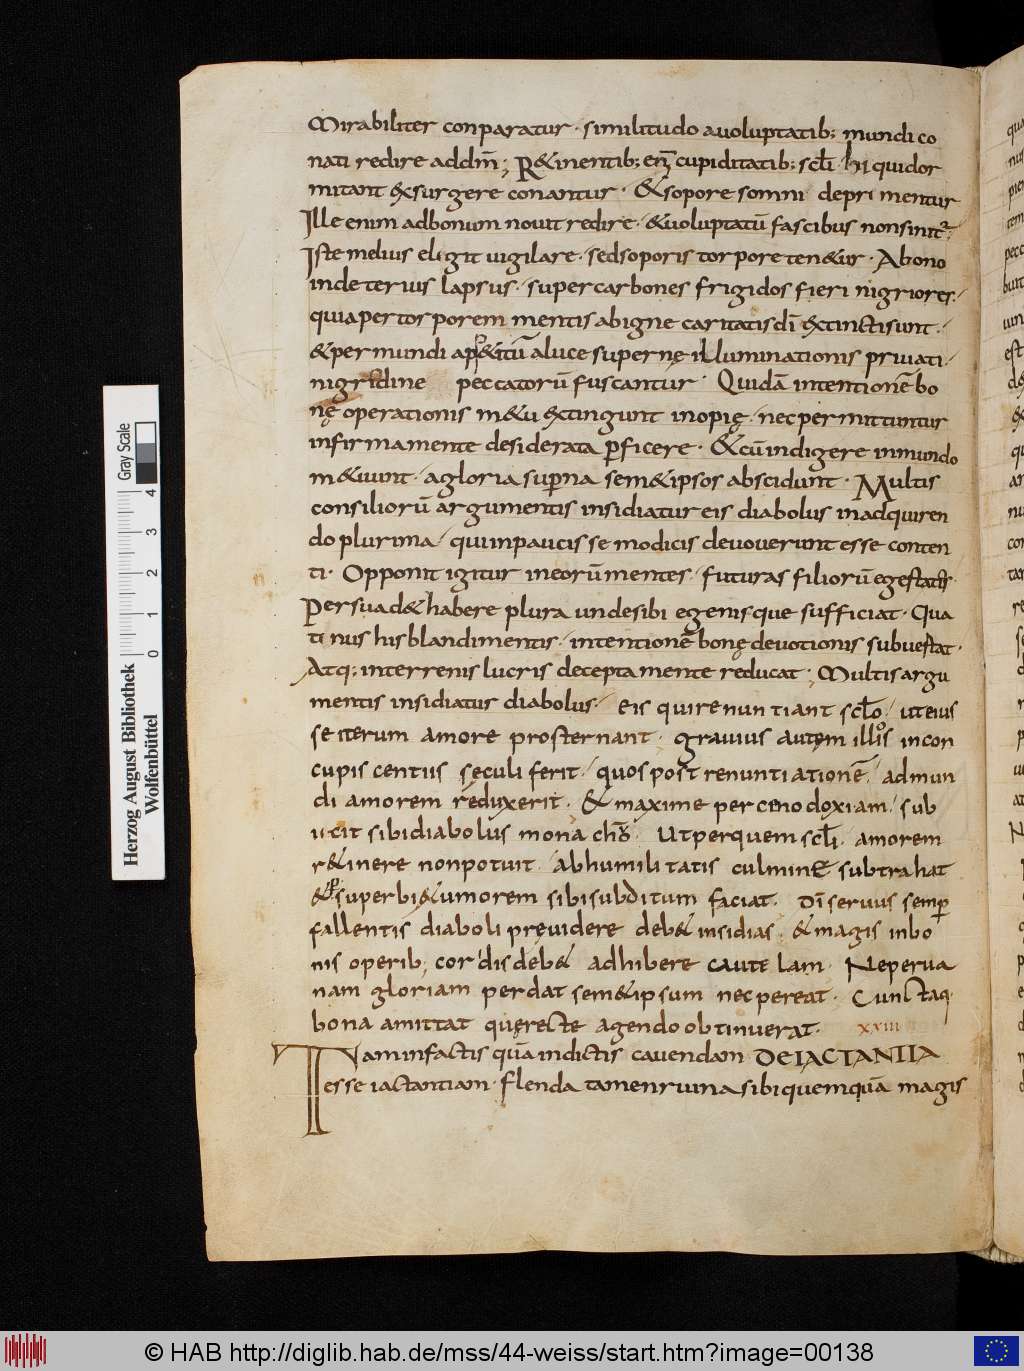 Mirabiliter conparatur · similitudo auoluptatib; mundi co
nati redire addm̄; R&inentib; eni cupiditatib; scl̄i · hi quidor
mitant exsurgere conantur · & sopore somni deprimentur
Ille enim adbonum nouit redire · &uoluptatū fascibus nonsinit̄;
Iste melius elegit uigilare · sedsoporis torpore ten&ur · Abono
indeterius lapsus · super carbones frigidos fieri nigriores ·
quiapertorporem mentis abigne caritatis dī extincti sunt ·
&permundi app&itū aluce supernę illuminationis priuati ·
nigridine peccatorū fuscantur · Quidā intentionē bo
nę operationis m&u extingunt inopię · nec permittuntur
infirma mente desiderata pficere · &cū indigere inmundo
m&uunt · agloria supna sem&ipsos abscidunt · Multis
consiliorū argumentis insidiatur eis diabolus inadquiren
do plurima · quiinpaucis se modicis deuouerunt esse conten
ti · Opponit igitur ineorū mentes · futuras filiorū egestates ·
Persuad& habere plura undesibi egenisque sufficiat · Qua
tinus his blandimentis · intentionē bonę deuotionis subuertat ·
Atq; interrenis lucris decepta mente reducat · Multis argu
mentis insidiatur diabolus · eis quirenuntiant scl̄o · uteius
se iterum amore prosternant · grauius autem illos incon
cupiscentiis sęculi ferit · quospost renuntiationē admun
di amorem reduxerit · & maxime per cenodoxiam · sub
icit sibidiabolus monachōs · Utperquem scl̄i amorem
r&inere nonpotuit · abhumilitatis culmine subtrahat
&p superbię tumorem sibisubditum faciat · Dī seruus semp
fallentis diaboli pręuidere deb& insidias · & magis inbo
nis operib; cordis deb& adhibere cautelam · Neperua
nam gloriam perdat sem&ipsum necpereat · Cunctaq·
bona amittat quę recte agendo obtinuerat · xxiii
Tam in factis quā indictis cauendam DEIACTANTIA
esse iactantiam · flenda tamen ruina sibi quemquā magis
Herzog August Bibliothek
Wolfenbüttel
0 1 2 3 4
Gray Scale
© HAB http://diglib.hab.de/mss/44-weiss/start.htm?image=00138